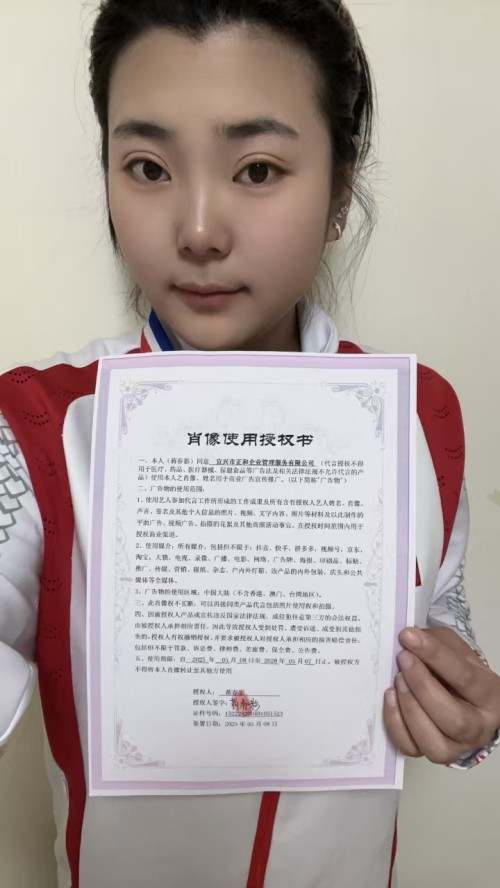 肖像使用授权书
一、本人（蒋春影）同意 宜兴市正和企业管理服务有限公司 （代言授权不得
用于医疗、药品、医疗器械、保健食品等广告法及相关法律法规不允许代言的产
品）使用本人之肖像、姓名用于商业广告宣传推广。（以下简称“广告物”）
二、广告物的使用范围：
1、使用艺人参加代言工作所形成的工作成果及所有含有授权人艺人姓名、肖像、
声音、签名及其他个人信息的照片、视频、文字内容、图片等材料及以此制作的
平面广告、视频广告、拍摄的花絮及其他商演活动事宜，在授权时间范围内用于
授权商业渠道。
2、使用媒介：所有媒介，包括但不限于：抖音、快手、拼多多、视频号、京东、
淘宝、天猫、电视、录像、广播、电影、网络、广告牌、海报、印刷品、标贴、
推广、外媒、营销、报纸、杂志、户内外灯箱、该产品的内外包装、店头和公共
媒体等全媒体。
3、广告物的使用区域：中国大陆（不含香港、澳门、台湾地区）。
三、此肖像权不买断，可以再接同类产品代言包括照片使用权和拍摄。
四、因被授权人产品或宣传违反国家法律法规、或侵犯任意第三方的合法权益，
由被授权人承担相应责任。因此导致授权人受到处罚、遭受诉讼、或受到其他损
失的，授权人有权撤销授权，并要求被授权人对授权人承担相应的损害赔偿责任，
包括但不限于罚款、诉讼费、律师费、差旅费、保全费、公告费。
五、使用期限：自 2025 年 03 月 08 日至 2028 年 03 月 07 日止。被授权方
不得将本人肖像转让至其他方使用
授权人： 蒋春影
授权人签字：
证件号码：
签署日期：2025 年 03 月 08 日